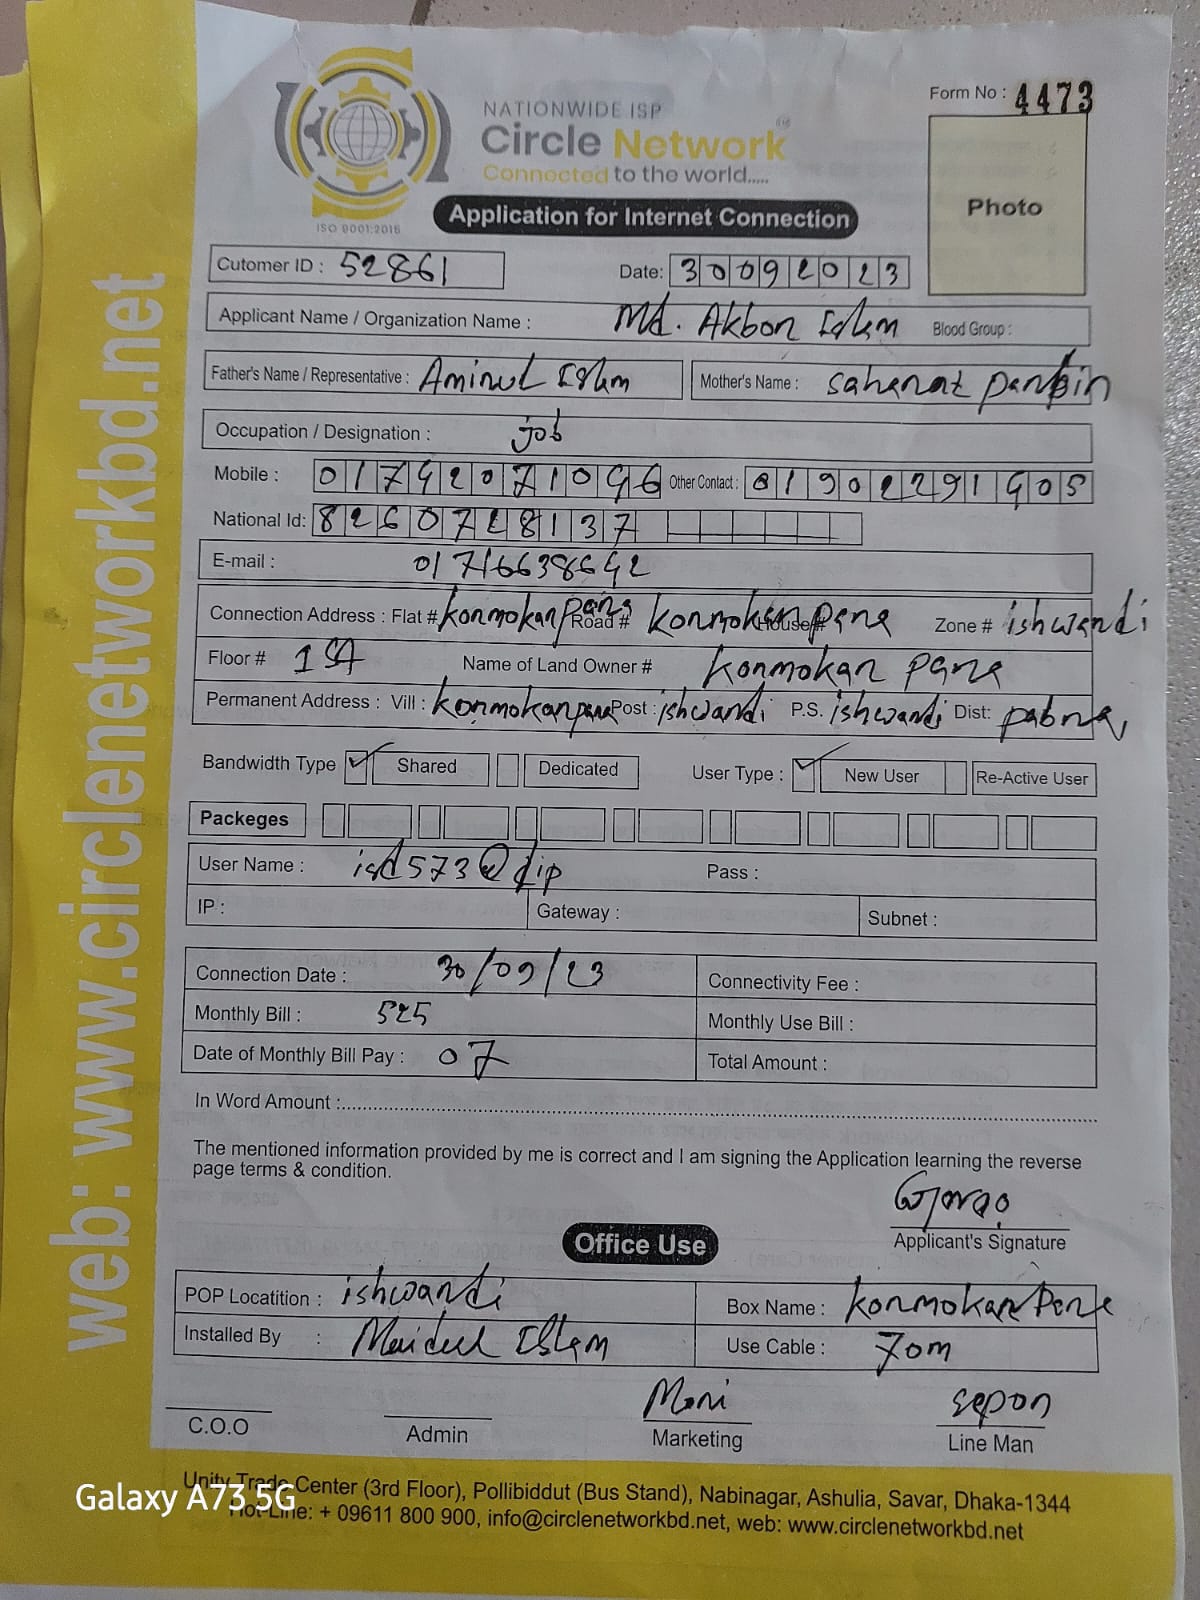 NATIONWIDE ISP
Circle Network
Connected to the world.....
ISO 9001:2015
Form No : 4473
Photo
Application for Internet Connection
Cutomer ID : 52861 Date: 30092023
Applicant Name / Organization Name : Md. Akbon Islam Blood Group :
Father's Name / Representative : Aminul Islam Mother's Name : sahanaz
Occupation / Designation : job
Mobile : 01792071096 Other Contact :
National Id: 8260728137
E-mail : 01716638642
Connection Address : Flat # konmokanpara Road # konmokan para House # Zone # ishwandi
Floor # 1st Name of Land Owner # konmokan para
Permanent Address : Vill : konmokanpara Post : ishwandi P.S. ishwandi Dist: pabna,
Bandwidth Type Shared Dedicated User Type : New User Re-Active User
Packeges
User Name : isd573@dip Pass :
IP : Gateway : Subnet :
Connection Date : 30/09/23 Connectivity Fee :
Monthly Bill : 525 Monthly Use Bill :
Date of Monthly Bill Pay : 07 Total Amount :
In Word Amount :
The mentioned information provided by me is correct and I am signing the Application learning the reverse
page terms & condition.
Applicant's Signature
Office Use
POP Locatition : ishwandi Box Name : konmokan Para
Installed By : Maidul Islam Use Cable : 70m
Moni sepon
C.O.O Admin Marketing Line Man
Unity Trade Center (3rd Floor), Pollibiddut (Bus Stand), Nabinagar, Ashulia, Savar, Dhaka-1344
Hot-Line: + 09611 800 900, info@circlenetworkbd.net, web: www.circlenetworkbd.net
web: www.circlenetworkbd.net
Galaxy A73 5G